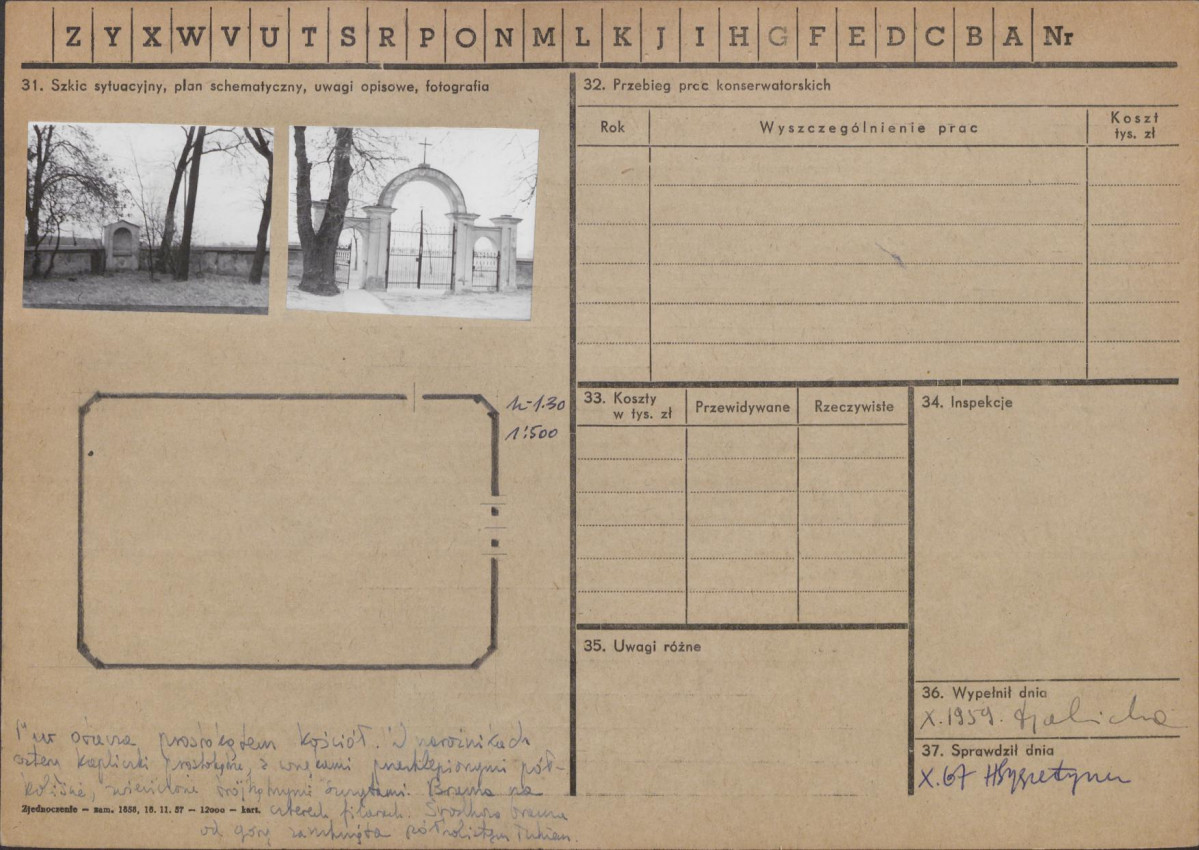 Z Y X W V U T S R P O N M L K J I H G F E D C B A Nr
31. Szkic sytuacyjny, plan schematyczny, uwagi opisowe, fotografia
h-1.30
1:500
Mur otacza prostokątem kościół. W narożnikach
cztery kapliczki prostokątne, z wnękami przesklepionymi pół-
koliście, zwieńczone trójkątnymi szczytami. Brama na
czterech filarach. Środkowa brama
od góry zamknięta półkolistym łukiem.
Zjednoczenie – zam. 1658, 16. 11. 57 – 12000 – kart.
32. Przebieg prac konserwatorskich
Rok
Wyszczególnienie prac
Koszt
tys. zł
33. Koszty
w tys. zł
Przewidywane
Rzeczywiste
34. Inspekcje
35. Uwagi różne
36. Wypełnił dnia
X.1959.
37. Sprawdził dnia
X.67